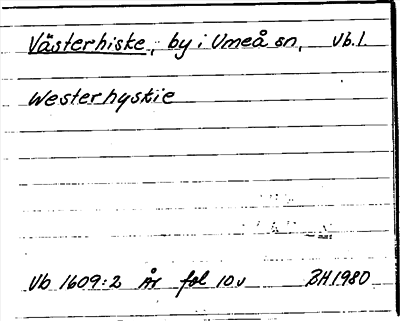 Västerhiske, by i Umeå sn, Vb.l.
Westerhyskie
Vb 1609:2 År fol 10v BH 1980